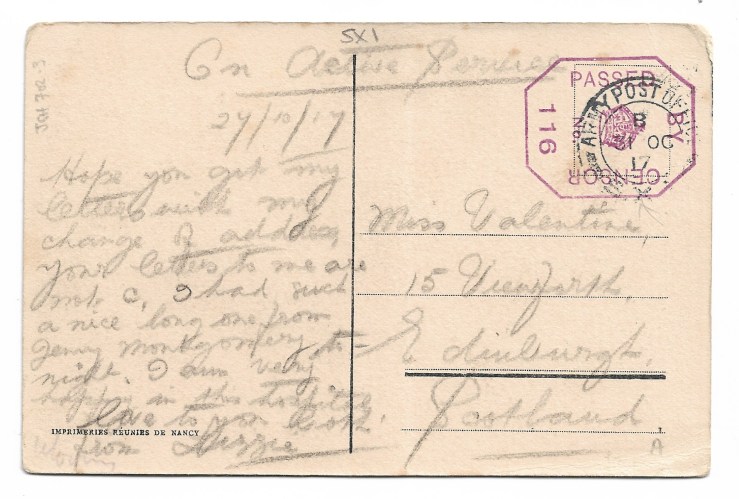 5X1
On Active Service
27/10/17
Hope you get my
letters with my
change of address,
your letters to me are
I had such
a nice long one from
Jenny Montgomery to-
night. I am very
happy in this hospital
Love to you both.
from Lizzie
IMPRIMERIES RÉUNIES DE NANCY
PASSED BY
No 116
CENSOR
ARMY POST OFFICE
B
31 OC
17
Miss Valentine,
15 Viewforth,
Edinburgh,
Scotland.
A